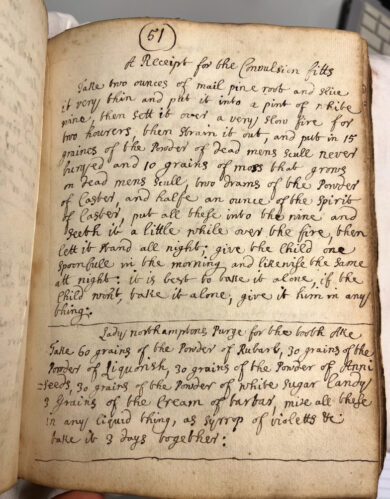 51
A Receipt for the Convulsion fitts
Take two ounces of mail pine root and slice
it very thin and put it into a pint of white
wine, then sett it over a very slow fire for
two howers, then strain it out, and put in 15
graines of the Powder of Dead mens scull never
buryed and 10 grains of moss that grows
on Dead mens scull, two drams of the Powder
of Caster, and halfe an ounce of the spirit
of Caster, put all these into the wine and
seeth it a little while over the fire, then
lett it stand all night: give the Child one
spoonfull in the morning and likewise the same
att night: it is best to take it alone, if the
Child wont take it alone, give it him in any
thing:
Lady northamptons Purge for the tooth Ake
Take 60 grains of the Powder of Rubarb, 30 grains of the
Powder of Liquorish, 30 grains of the Powder of Anni
=seeds, 30 grains of the Powder of white sugar Candy
3 Grains of the Cream of tartar, mixe all these
in any liquid thing, as syrrop of violetts &c
take it 3 days together: